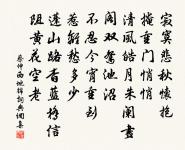 寂寞悲秋懷抱
掩重門悄悄
清風皓月朱闌畫
閣雙鴛池沼
不忍今宵重到
惹離愁多少
蓬山路杳藍橋信
阻黃花空老
蔡伸西地錦詞